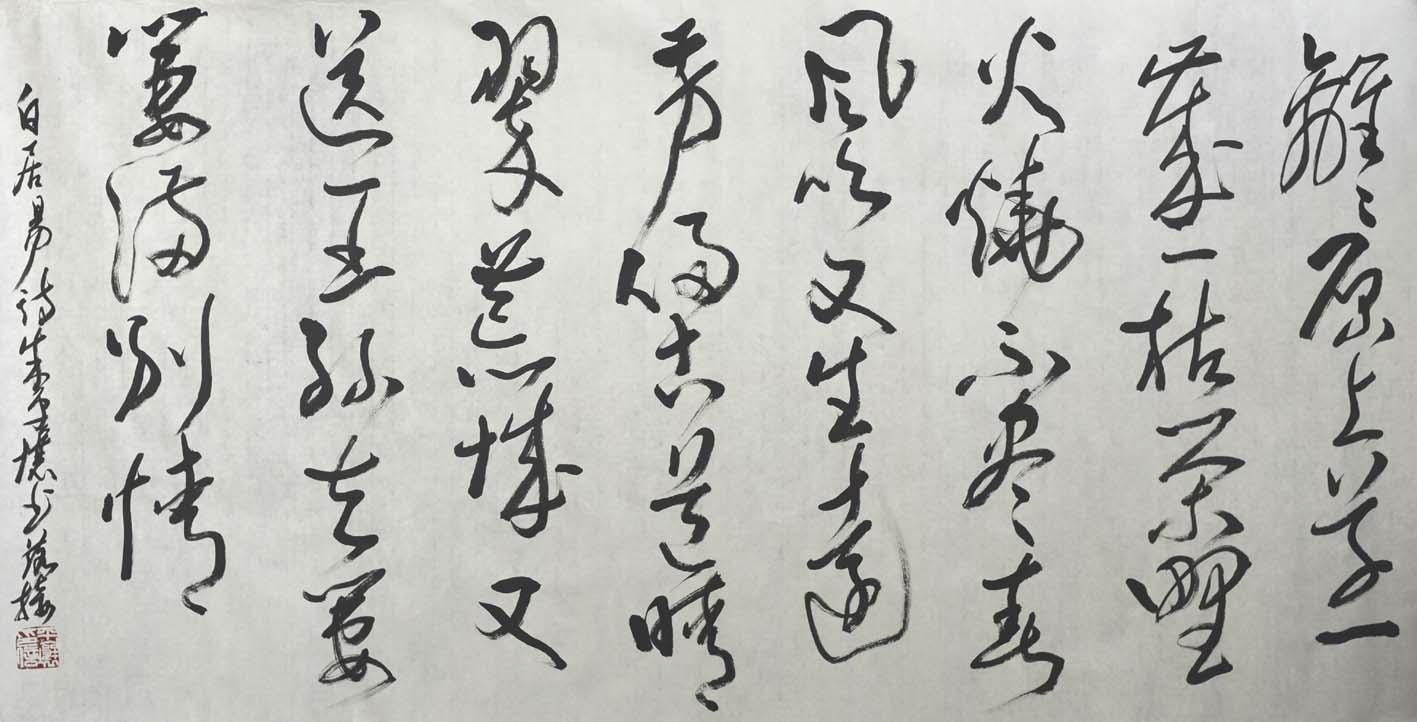 離々原上草一
歲一枯榮野
火燒不盡春
風吹又生遠
芳侵古道晴
翠接荒城又
送王孫去萋
萋滿別情
白居易詩